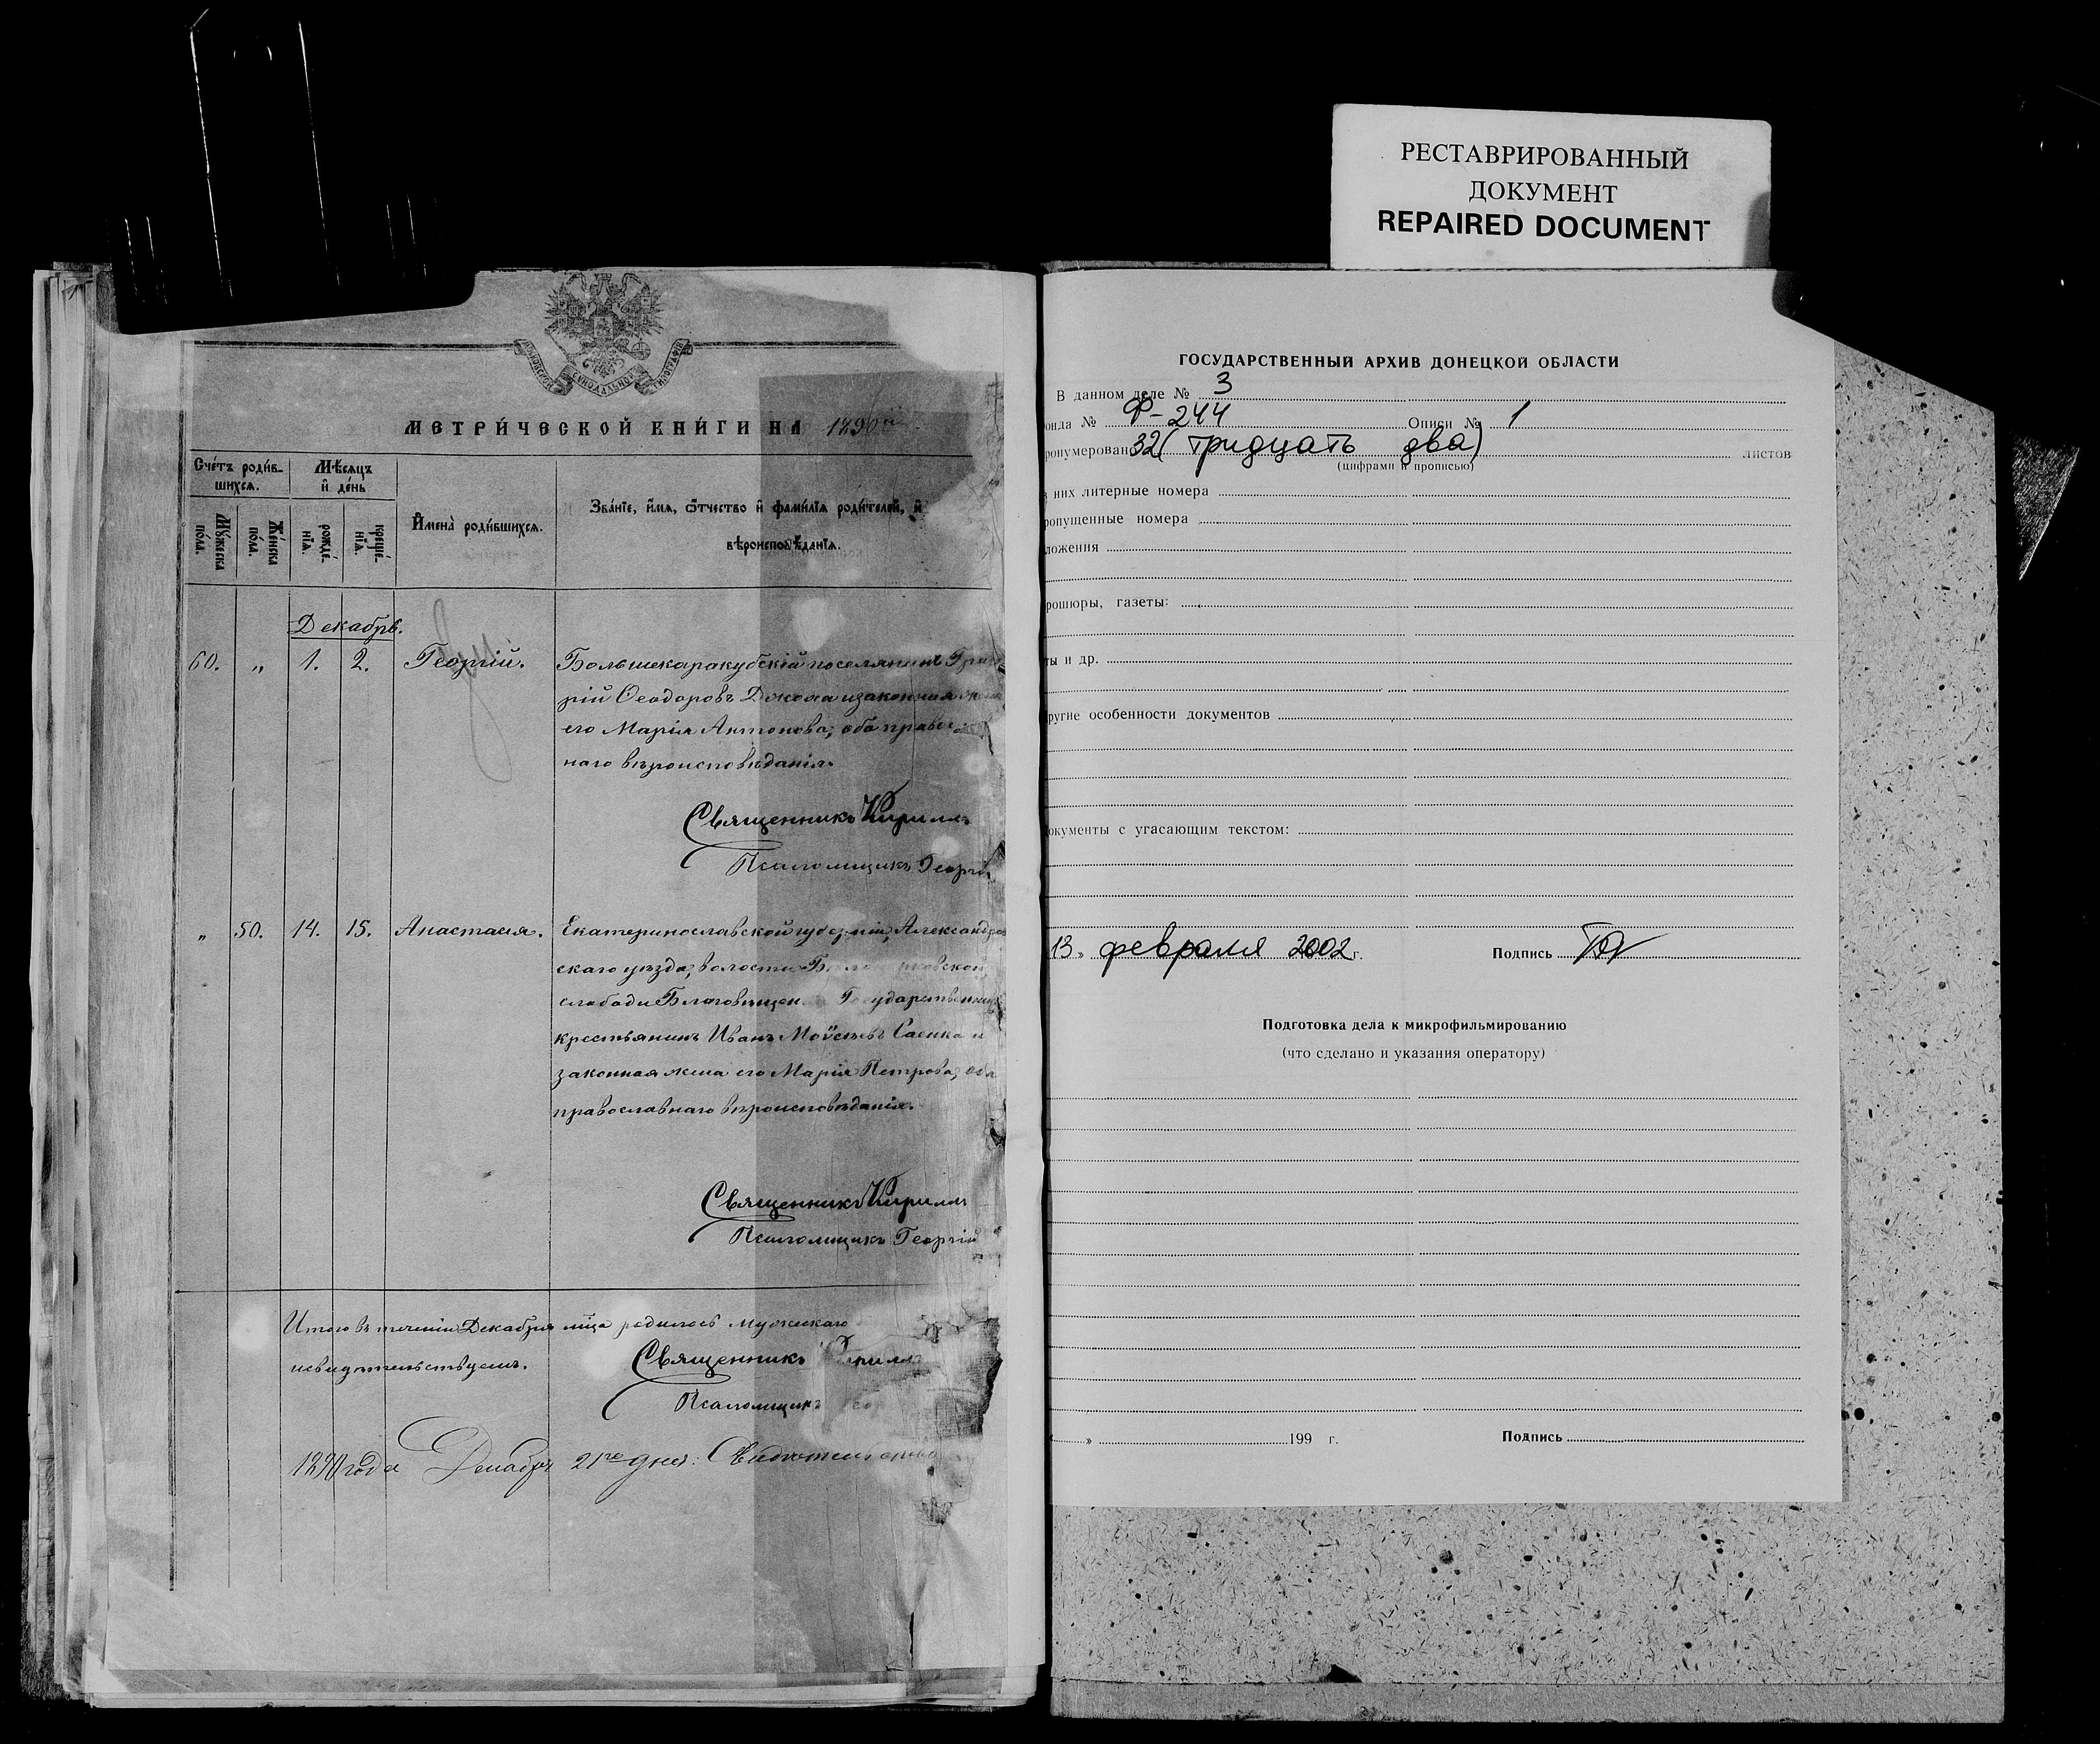 РЕСТАВРИРОВАННЫЙ
ДОКУМЕНТ
REPAIRED DOCUMENT
МОСКОВСКОЙ СѴНОДАЛЬНОЙ ТИПОГРАФІИ
МЕТРИ́ЧЕСКОЙ КНИ́ГИ НА 1890й
Сче́тъ роди́в-
шихсѧ.
Мѣ́сѧцъ
и҆ де́нь
Мꙋ́жеска
по́ла.
Же́нска
по́ла.
рожде́-
нїѧ.
креще́-
нїѧ.
И҆мена̀ роди́вшихсѧ.
Зва́нїе, и҆́мѧ, ѻ҆́тчество и҆ фами́лїѧ роди́телей, и҆
вѣроисповѣ́данїѧ.
Декабрь.
60. „ 1. 2. Георгій.
Большекаракубскій поселянинъ Григо
рій Ѳеодоровъ Джоха и законная жена
его Марія Антонова; оба правос
наго вѣроисповѣданія.
Священникъ Кириллъ
Псаломщикъ Георгій
„ 50. 14. 15. Анастасія.
Екатеринославской губерніи, Александров
скаго уѣзда, волости
слободи Благовѣщен Государственный
крестьянинъ Иванъ Моѵсеевъ Саенко и
законная жена его Марія Петрова; оба
православнаго вѣроисповѣданія.
Священникъ Кириллъ
Псаломщикъ Георгій
Итого въ теченіи Декабря мѣца родилось мужескаго
и свидѣтельствуемъ.
Священникъ Кириллъ
Псаломщикъ Геор
1890 года Декабря 21го дня:
ГОСУДАРСТВЕННЫЙ АРХИВ ДОНЕЦКОЙ ОБЛАСТИ
В данном деле № 3
онда № Ф-244 Описи № 1
ронумерован 32 (тридцать два) листов
(цифрами и прописью)
з них литерные номера
ропущенные номера
ложения
рошюры, газеты:
ты и др.
ругие особенности документов
окументы с угасающим текстом:
13 » февраля 2002 г. Подпись
Подготовка дела к микрофильмированию
(что сделано и указания оператору)
» 199 г. Подпись